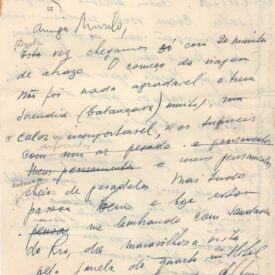 Amigo Murilo,
Desta
Esta vez chegamos só com 20 minutos
de atrazo. O começo da viagem
não foi nada agradavel o trem
(balançava) muito, um
calor insuportavel, e os
com um ar pesado e pensamentos
meus pensamentos e meus pensamentos
cheios de pesadelos mas tudo
passou bem e hoje estou
pensa me lembrando com saudade
do Rio, da maravilhosa vista
pela janela do quarto no Hotel